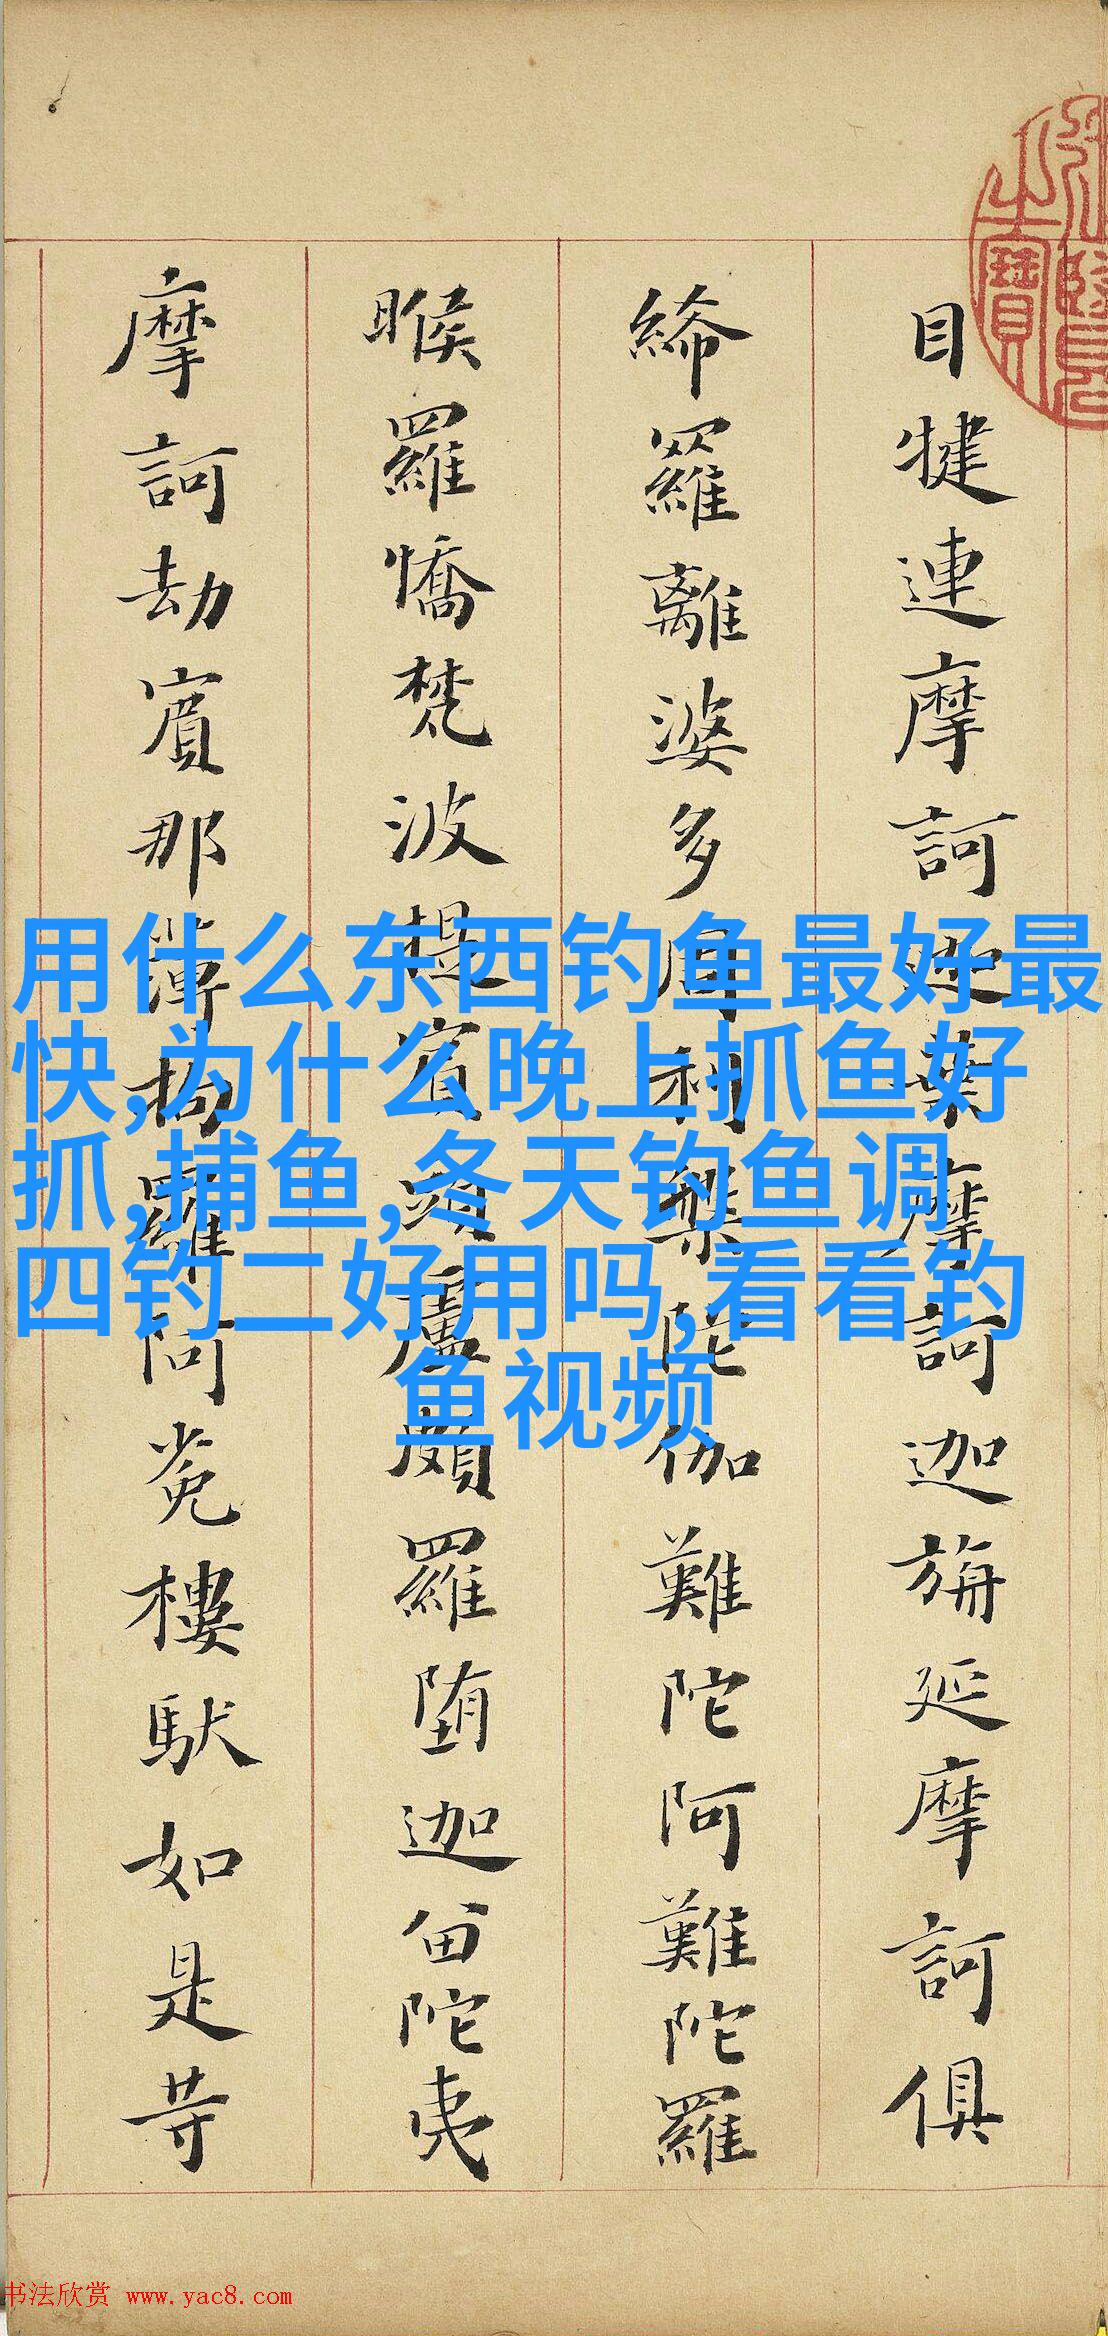 目犍連摩訶迦葉摩訶迦旃延摩訶俱
絺羅離婆多周利槃陀伽難陀阿難陀羅
睺羅憍梵波提賓頭盧頗羅墮迦留陀夷
摩訶劫賓那薄拘羅阿㝹樓馱如是等
用什么东西钓鱼最好最
快,为什么晚上抓鱼好
抓,捕鱼,冬天钓鱼调
四钓二好用吗,看看钓
鱼视频
书法欣赏 www.yac8.com